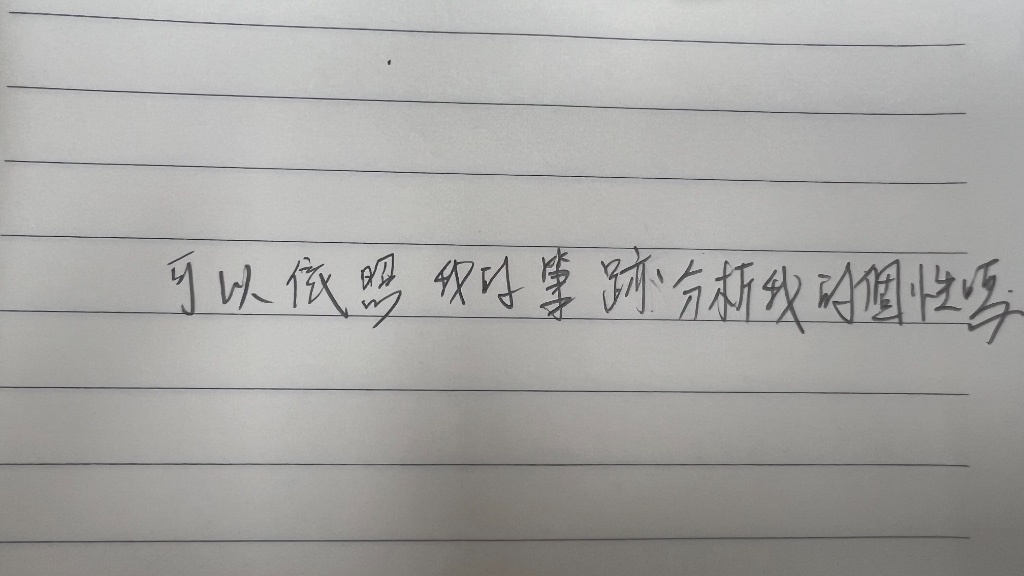 可以依照我的筆跡分析我的個性嗎